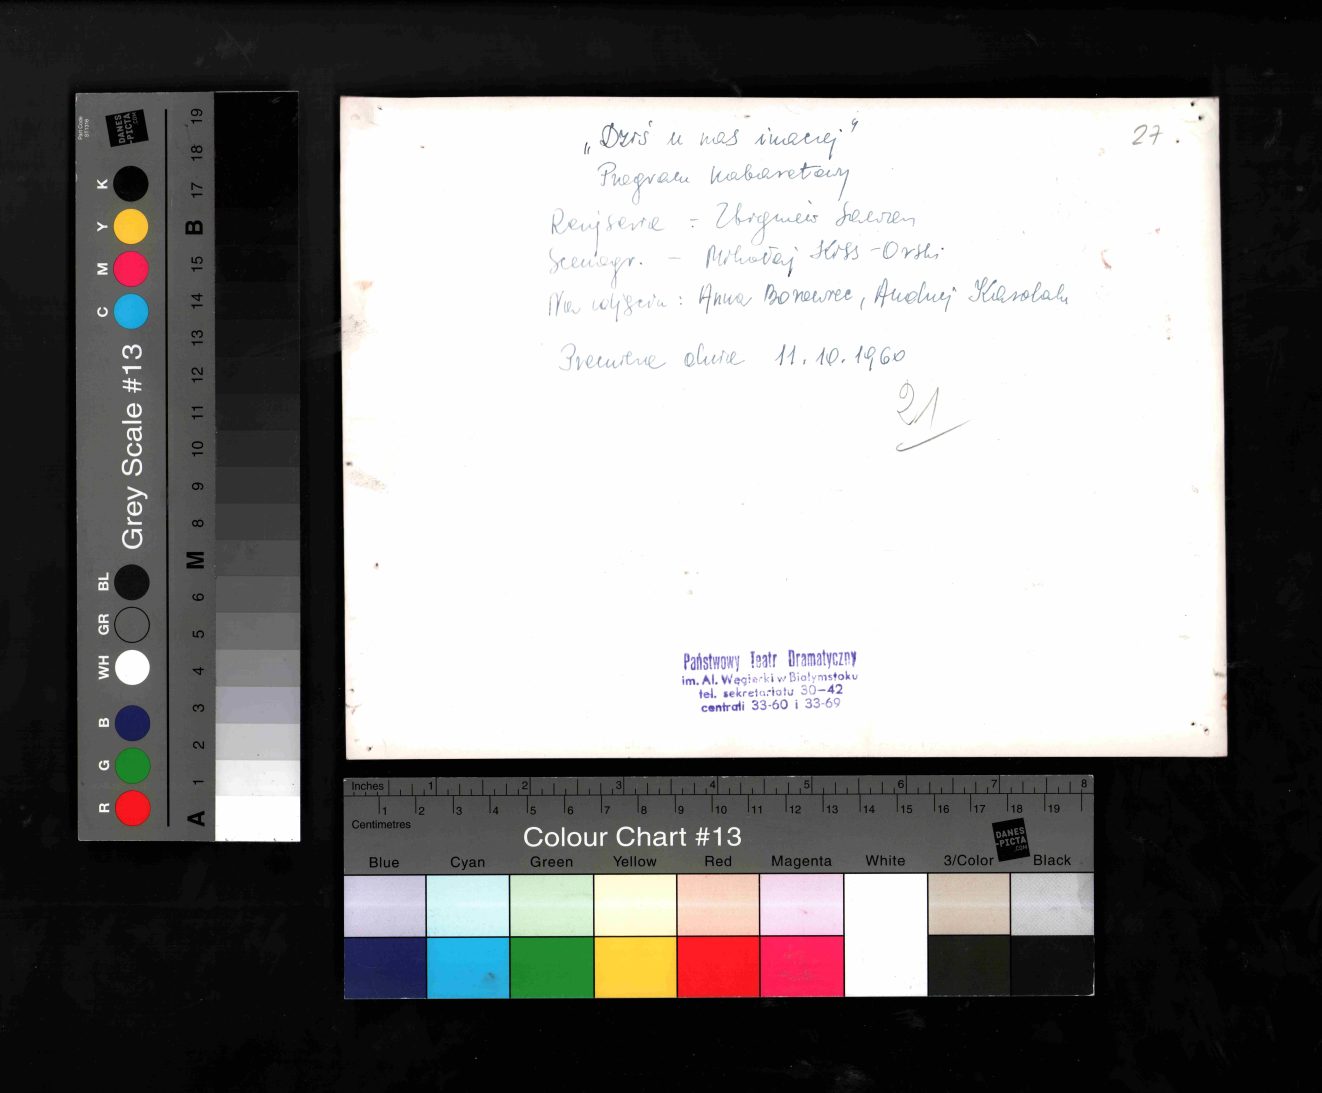 „Dziś u nas inaczej"
Program kabaretowy
Reżyseria - Zbigniew
Scenogr. - Mikołaj Kiss-Orski
Na zdjęciu: Anna , Andrzej Karolak
Premiera dnia 11.10.1960
27
21
Państwowy Teatr Dramatyczny
im. Al. Węgierki w Białymstoku
tel. sekretariatu 30-42
centrali 33-60 i 33-69
Part Code
DANES
-PICTA
.COM
Grey Scale #13
K Y M C
BL GR WH B G R
19 18 17 B 15 14 13 12 11 10 9 8 M 6 5 4 3 2 1 A
Inches 1 2 3 4 5 6 7 8
1 2 3 4 5 6 7 8 9 10 11 12 13 14 15 16 17 18 19
Centimetres
Colour Chart #13
DANES
-PICTA
.COM
Blue Cyan Green Yellow Red Magenta White 3/Color Black